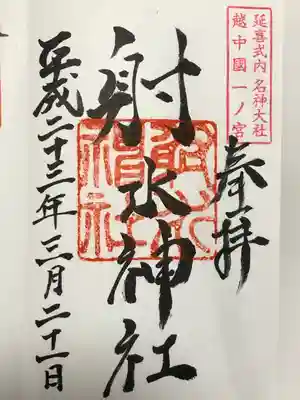 延喜式内 名神大社
越中國一ノ宮
奉拝
射水神社
平成二十三年三月二十一日